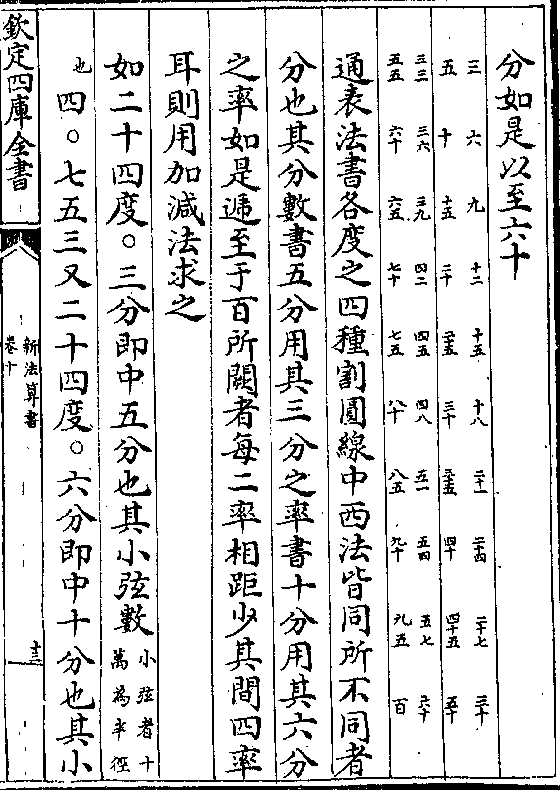 分如是以至六十
三 六 九 十二 十五 十八 二十一 二十四 二十七 三十
五 十 十五 二十 二十五 三十 三十五 四十 四十五 五十
三三 三六 三九 四二 四五 四八 五一 五四 五七 六十
五五 六十 六五 七十 七五 八十 八五 九十 九五 百
通表法書各度之四種割圓線中西法皆同所不同者
分也其分數書五分用其三分之率書十分用其六分
之率如是遞至于百所闕者每二率相距少其間四率
耳則用加減法求之
如二十四度〇三分即中五分也其小弦數小弦者十萬為半徑
也四〇七五三又二十四度〇六分即中十分也其小
欽定四庫全書
新法算書
卷十
十三